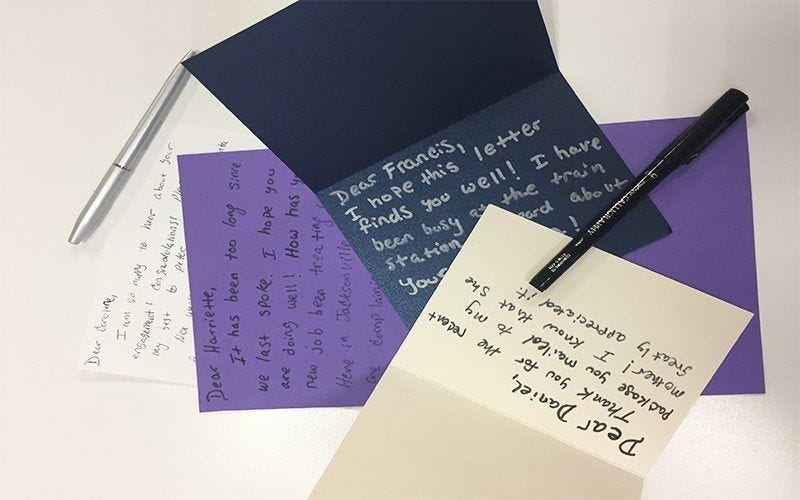 Dear Caroline,
I am so happy to hear about your
engagement! Congradulations!
my best to Peter
Dear Harriette,
It has been too long since
we last spoke. I hope you
are doing well! How has
new job been treating
Here in Jacksonville
are damp
Dear Francis,
I hope this letter
finds you well! I have
been busy at the train
station about
your
Dear Daniel,
Thank you for the recent
package you mailed to my
mother! I know that she
greatly appreciated it.
CALLIGRAPHY